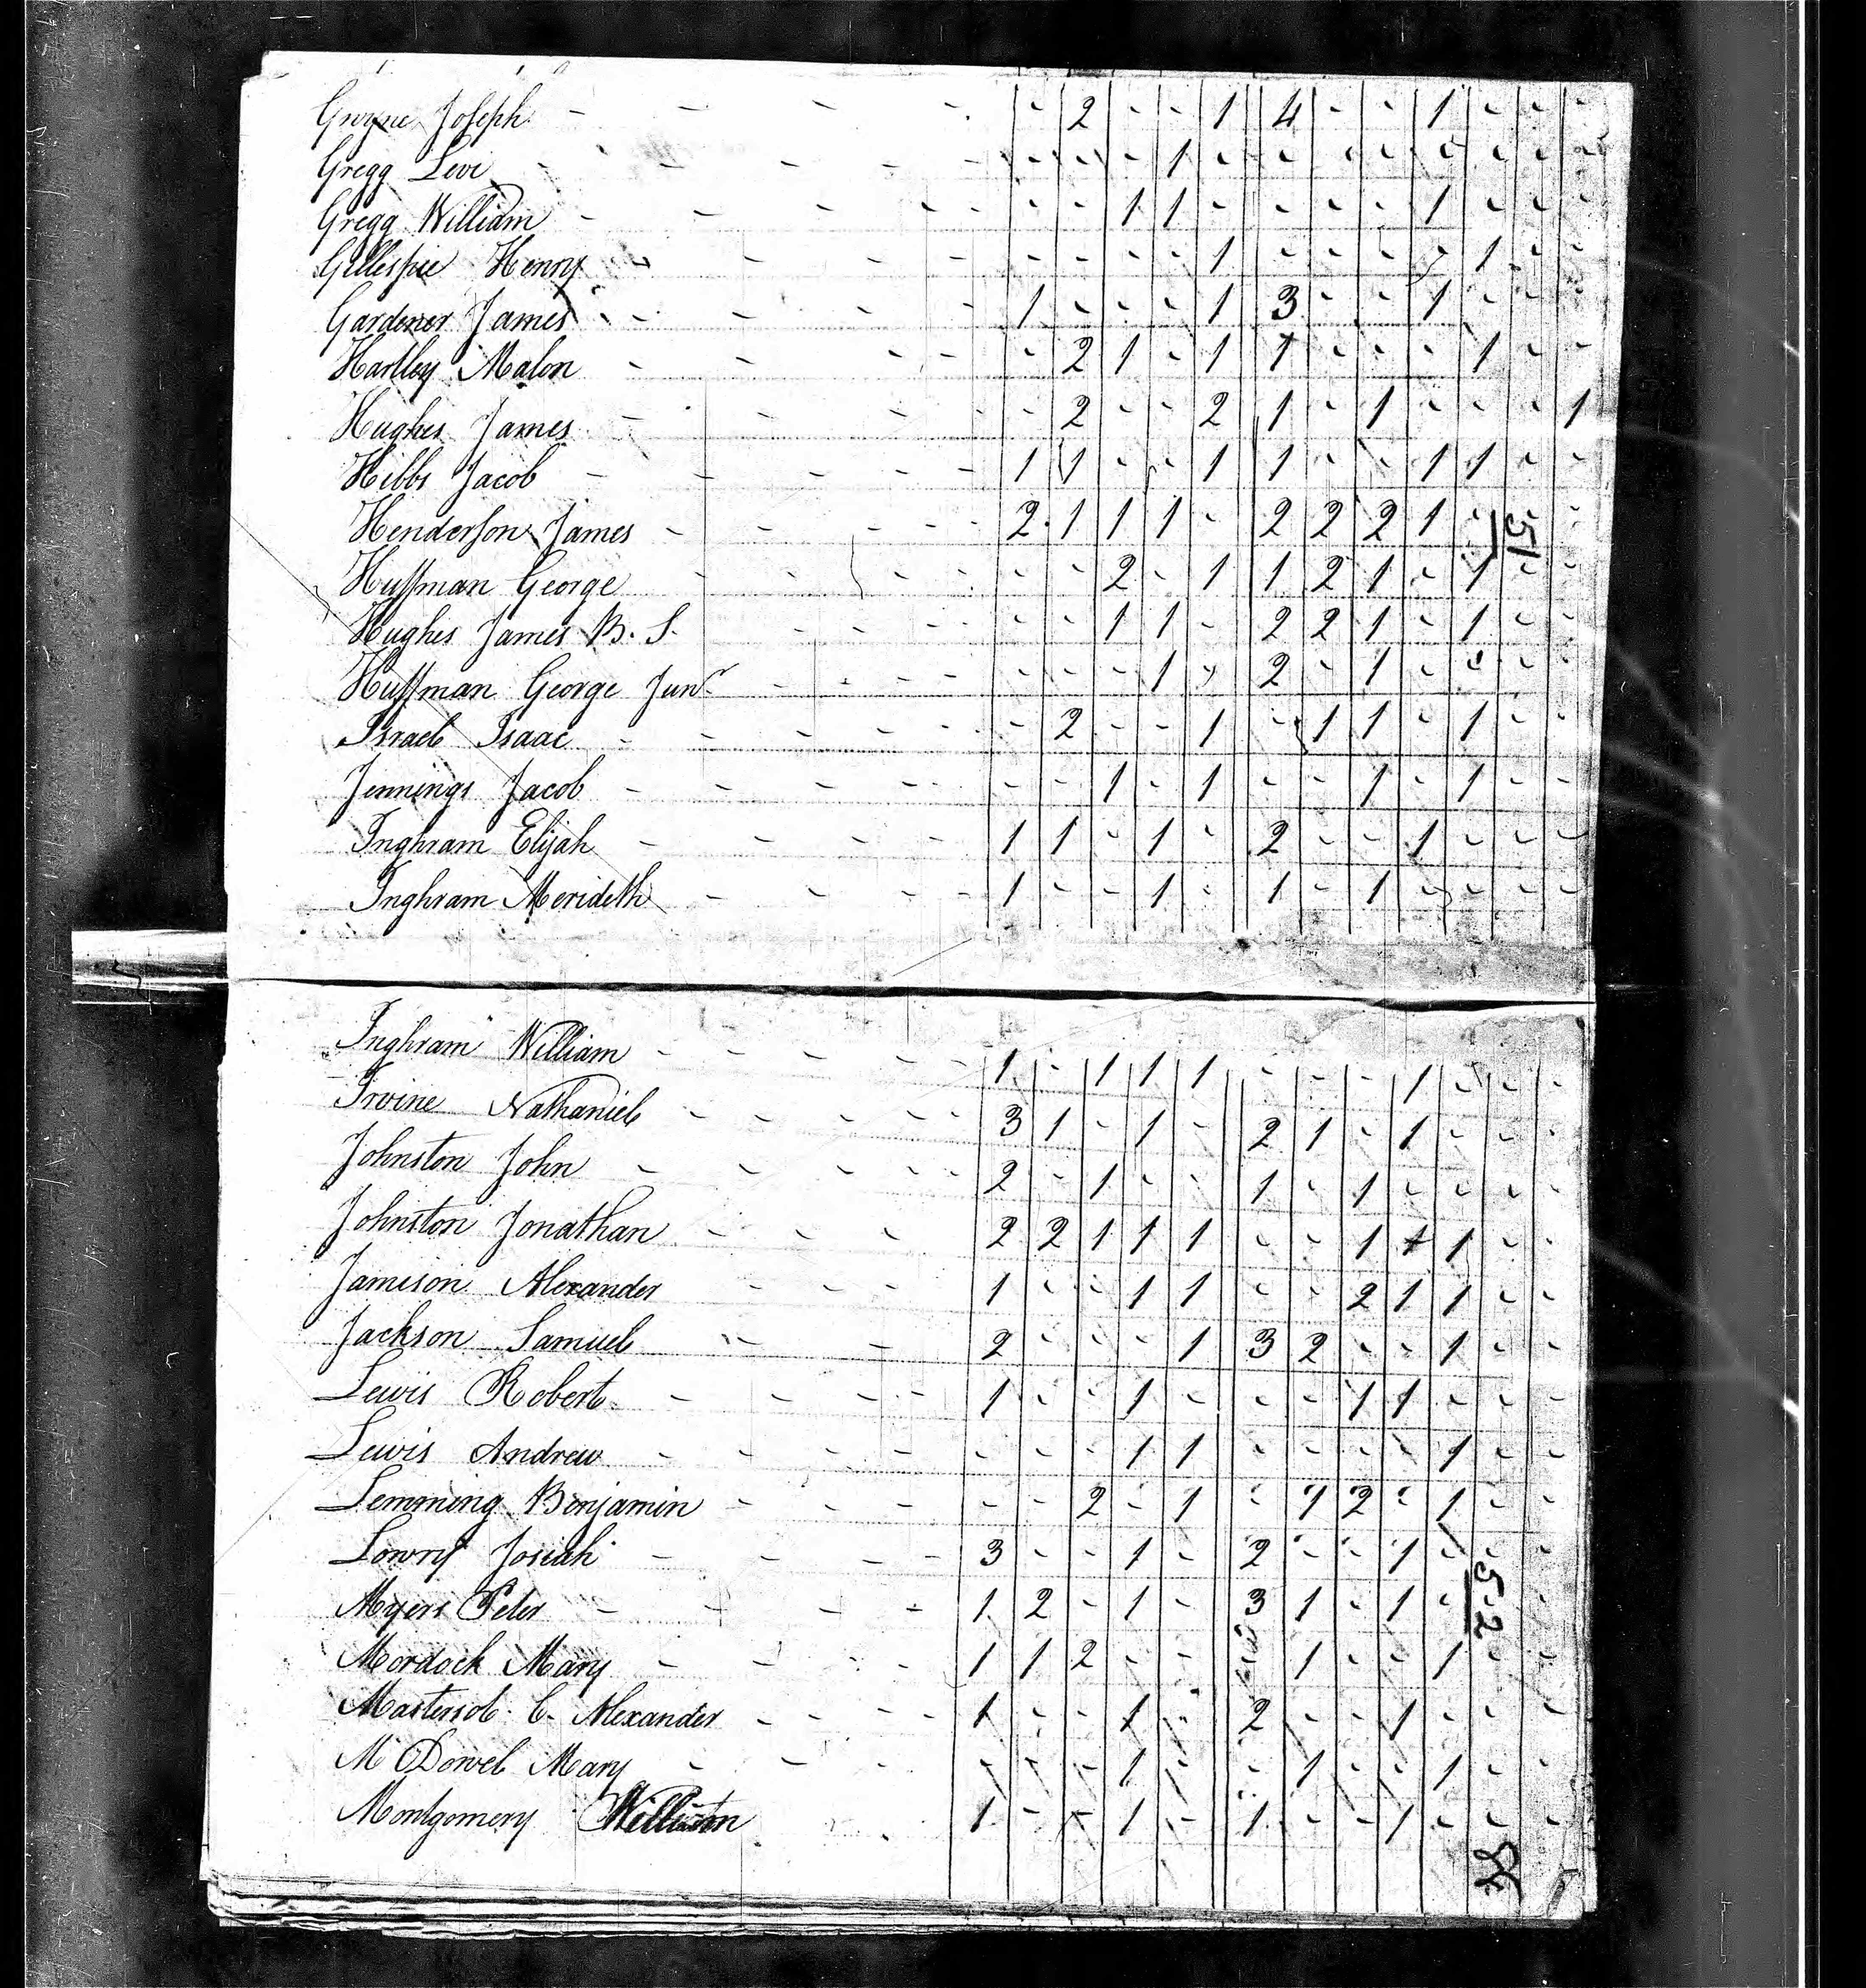 Gwyne Joseph - - - - - 2 - - 1 4 - - 1 - - -
Gregg Levi - - - - - - - - 1 - - - - - - - -
Gregg William - - - - - - - 1 1 - - - - 1 - - -
Gillespie Henry - - - - - - - - 1 - - - - 1 - -
Gardener James - - - - 1 - - - 1 3 - - 1 - - -
Hartley Malon - - - - - 2 1 - 1 1 - - - 1 - -
Hughes James - - - - - 2 - - 2 1 - 1 - - - 1
Hibbs Jacob - - - - 1 1 - - 1 1 - - 1 1 - -
Henderson James - - - - - 2 1 1 1 - 2 2 2 1 - - -
51
Huffman George - - - - - - 2 - 1 1 2 1 - 1 - -
Hughes James B. S. - - - - - - 1 1 - 2 2 1 - 1 - -
Huffman George Junr - - - - - - - 1 - 2 - 1 - - - -
Israel Isaac - - - - - - 2 - - 1 - 1 1 - 1 - -
Jennings Jacob - - - - - - - 1 - 1 - - 1 - 1 - -
Inghram Elijah - - - - 1 1 - 1 - 2 - - 1 - - -
Inghram Merideth - - - - 1 - - 1 - 1 - 1 - - - -
Inghram William - - - - - 1 - 1 1 1 - - - 1 - - -
Irvine Nathaniel - - - - - 3 1 - 1 - 2 1 - 1 - - -
Johnston John - - - - - 2 - 1 - - 1 - 1 - - - -
Johnston Jonathan - - - 2 2 1 1 1 - - 1 1 1 - -
Jameson Alexander - - - 1 - - 1 1 - - 2 1 1 - -
Jackson Samuel - - - 2 - - - 1 3 2 - - 1 - -
Lewis Robert - - - - 1 - - 1 - - - 1 1 - - -
Lewis Andrew - - - - - - - 1 1 - - - - 1 - -
Lemming Benjamin - - - - - 2 - 1 - 1 2 - 1 - -
Lowry Josiah - - - - 3 - - 1 - 2 - - 1 - - -
52
Myers Peter - - - - 1 2 - 1 - 3 1 - 1 - - -
Mordock Mary - - - - 1 1 2 - - 1 - - 1 - -
C. Alexander - - - - 1 - - 1 - 2 - - 1 - - -
McDowel Mary - - - - - - 1 - - 1 - - 1 - -
Montgomery William - - 1 - - 1 - 1 - - 1 - - -